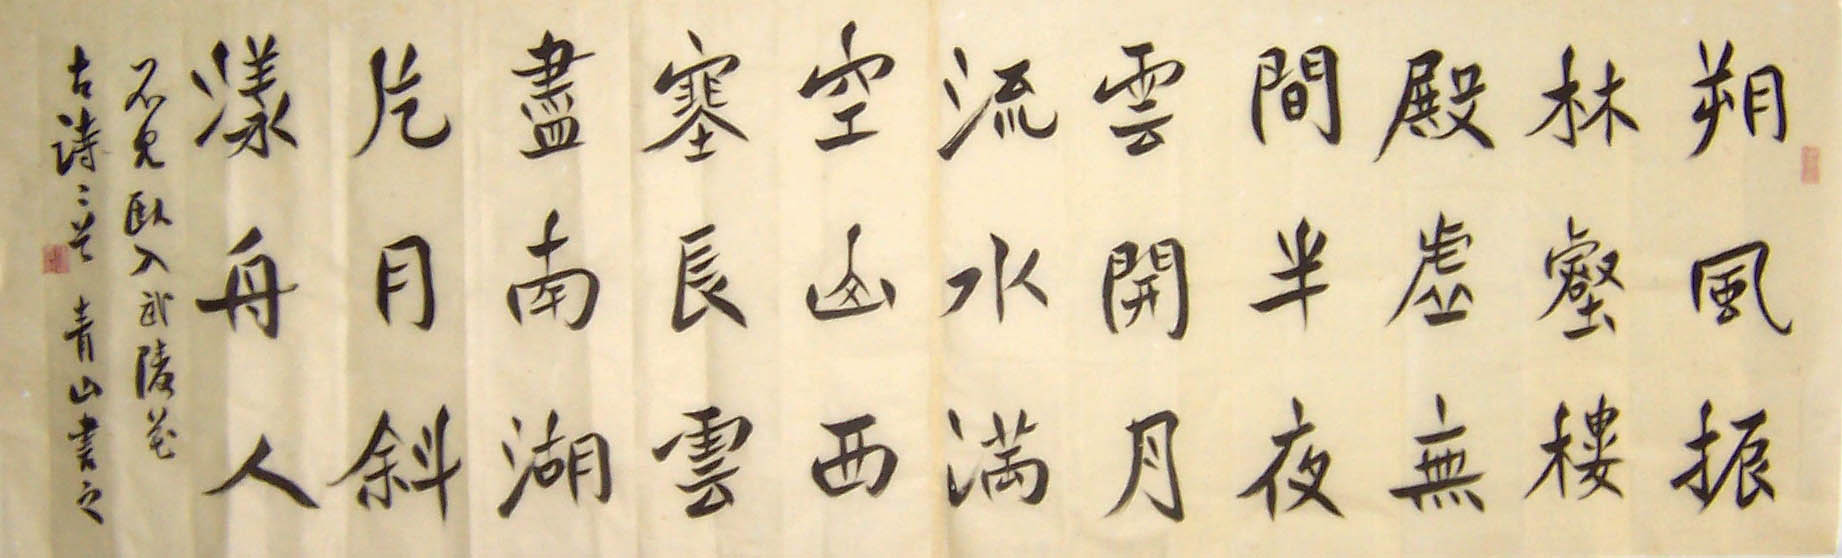 朔風振
林壑樓
殿虛無
間半夜
雲開月
流水滿
空山西
塞長雲
盡南湖
片月斜
漾舟人
不見臥入武陵花
古詩二首 青山書之